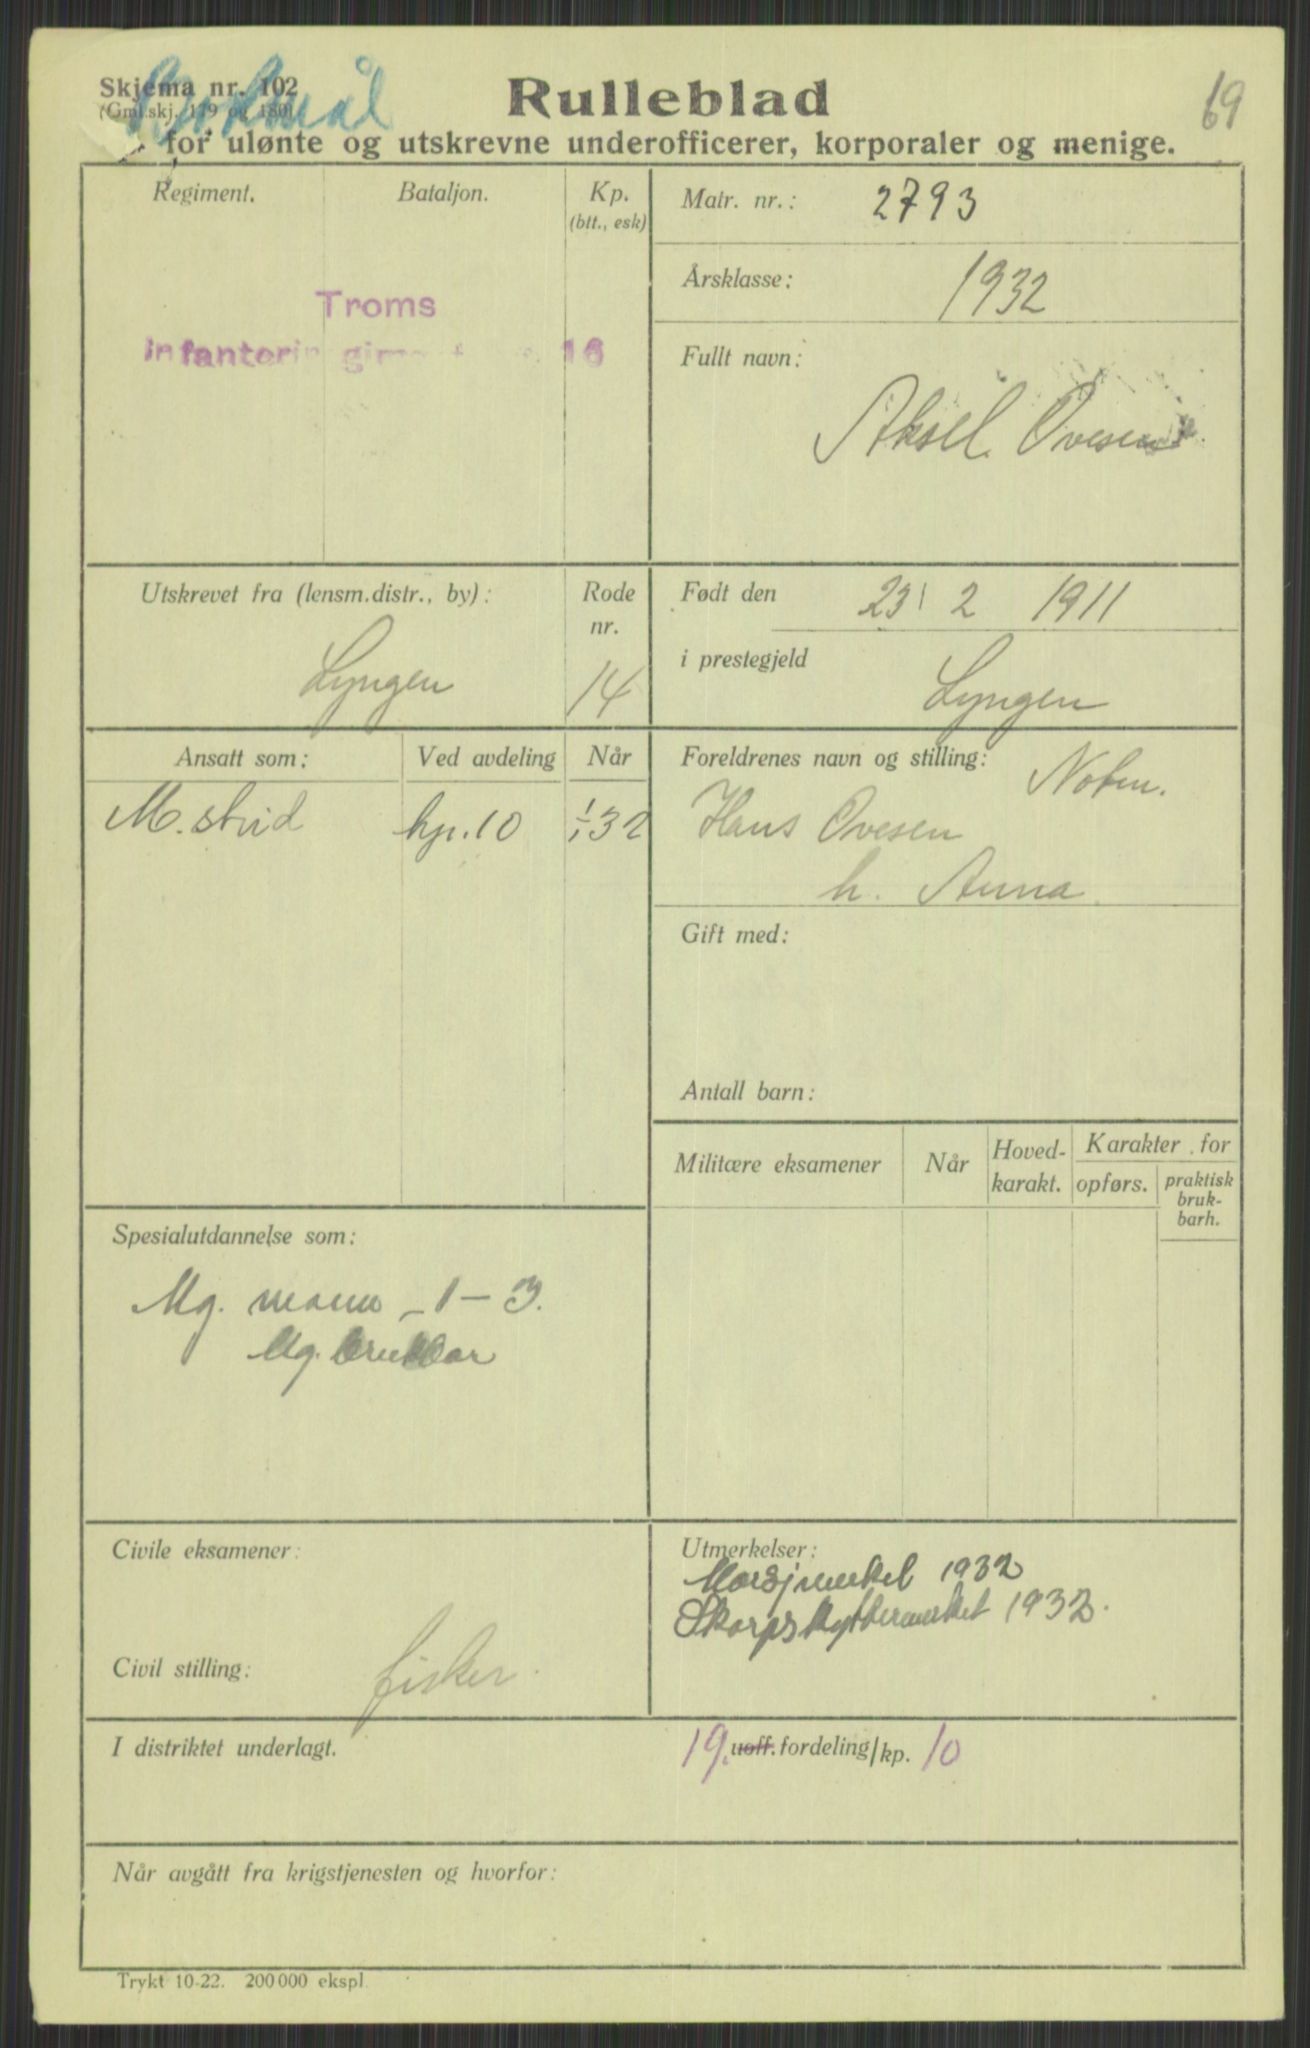 Skjema nr. 102
(Gml.skj. 179 og 180)
Bokmål
Rulleblad
69
for ulønte og utskrevne underofficerer, korporaler og menige.
Regiment. Bataljon. Kp.
(btt., esk)
Troms
Infanteriregiment 16
Matr. nr.: 2793
Årsklasse: 1932
Fullt navn:
Aksel Ovesen
Utskrevet fra (lensm.distr., by): Rode nr.
Lyngen 14
Født den 23 2 1911
i prestegjeld Lyngen
Ansatt som: Ved avdeling Når
M. strid kp. 10 1/1 32
Foreldrenes navn og stilling:
Hans Ovesen
h. Anna
Gift med:
Antall barn:
Militære eksamener Når Hoved-karakt. Karakter for
opførs. praktisk bruk-barh.
Spesialutdannelse som:
Mg. mann - 1 - 3.
Mg. brukbar
Civile eksamener:
Civil stilling: fisker
Utmerkelser:
Marsjmerket 1932
Skarpskyttermerket 1932.
I distriktet underlagt. 19. uoff. fordeling/kp. 10
Når avgått fra krigstjenesten og hvorfor:
Trykt 10-22. 200 000 ekspl.